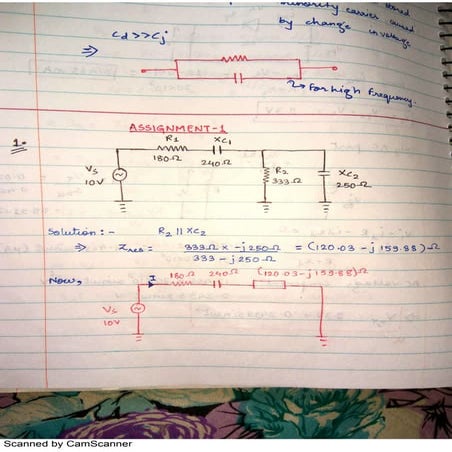 minority carrier
by change in voltage
Cd>>Cj
⇒
→ For high frequency.
ASSIGNMENT-1
1.
R1
180Ω
XC1
240Ω
Vs
10V
R2
333Ω
XC2
250Ω
Solution:- R2 || XC2
⇒ Zres = 333Ω × -j250Ω / 333 - j250Ω = (120.03 - j 159.88)Ω
Now,
I
180Ω
240Ω
(120.03 - j 159.88)Ω
Vs
10V
Scanned by CamScanner